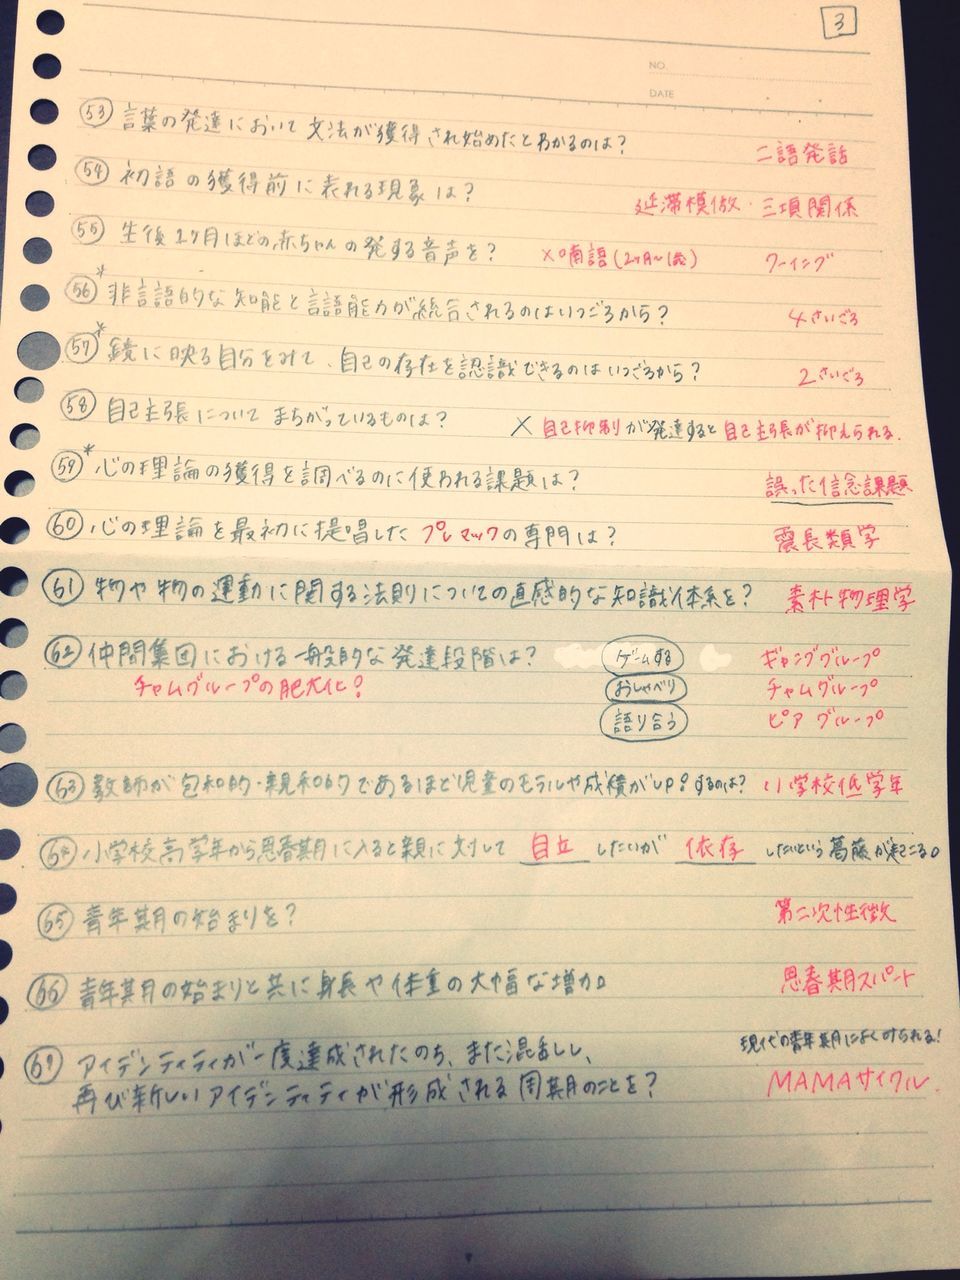 3
NO.
DATE
53 言葉の発達において文法が獲得され始めたとわかるのは? 二語発話
54 初語の獲得前に表れる現象は? 延滞模倣・三項関係
55 生後2ヶ月ほどの赤ちゃんの発する音声を? ×喃語(2ヶ月〜1歳) クーイング
*56 非言語的な知能と言語能力が統合されるのはいつごろから? 4さいごろ
*57 鏡に映る自分をみて、自己の存在を認識できるのはいつごろから? 2さいごろ
58 自己主張についてまちがっているものは? × 自己抑制が発達すると自己主張が抑えられる.
59* 心の理論の獲得を調べるのに使われる課題は? 誤った信念課題
60 心の理論を最初に提唱したプレマックの専門は? 霊長類学
61 物や物の運動に関する法則についての直感的な知識体系を? 素朴物理学
62 仲間集団における一般的な発達段階は? ゲームする ギャンググループ
チャムグループの肥大化? おしゃべり チャムグループ
語り合う ピアグループ
63 教師が包和的・親和的であるほど児童のモラルや成績がUP!するのは? 小学校低学年
64 小学校高学年から思春期に入ると親に対して 自立 したいが 依存 したいという葛藤が起こる。
65 青年期の始まりを? 第二次性徴
66 青年期の始まりと共に身長や体重の大幅な増加。 思春期スパート
67 アイデンティティが一度達成されたのち、また混乱し、 現代の青年期によくみられる!
再び新しいアイデンティティが形成される周期のことを? MAMAサイクル.